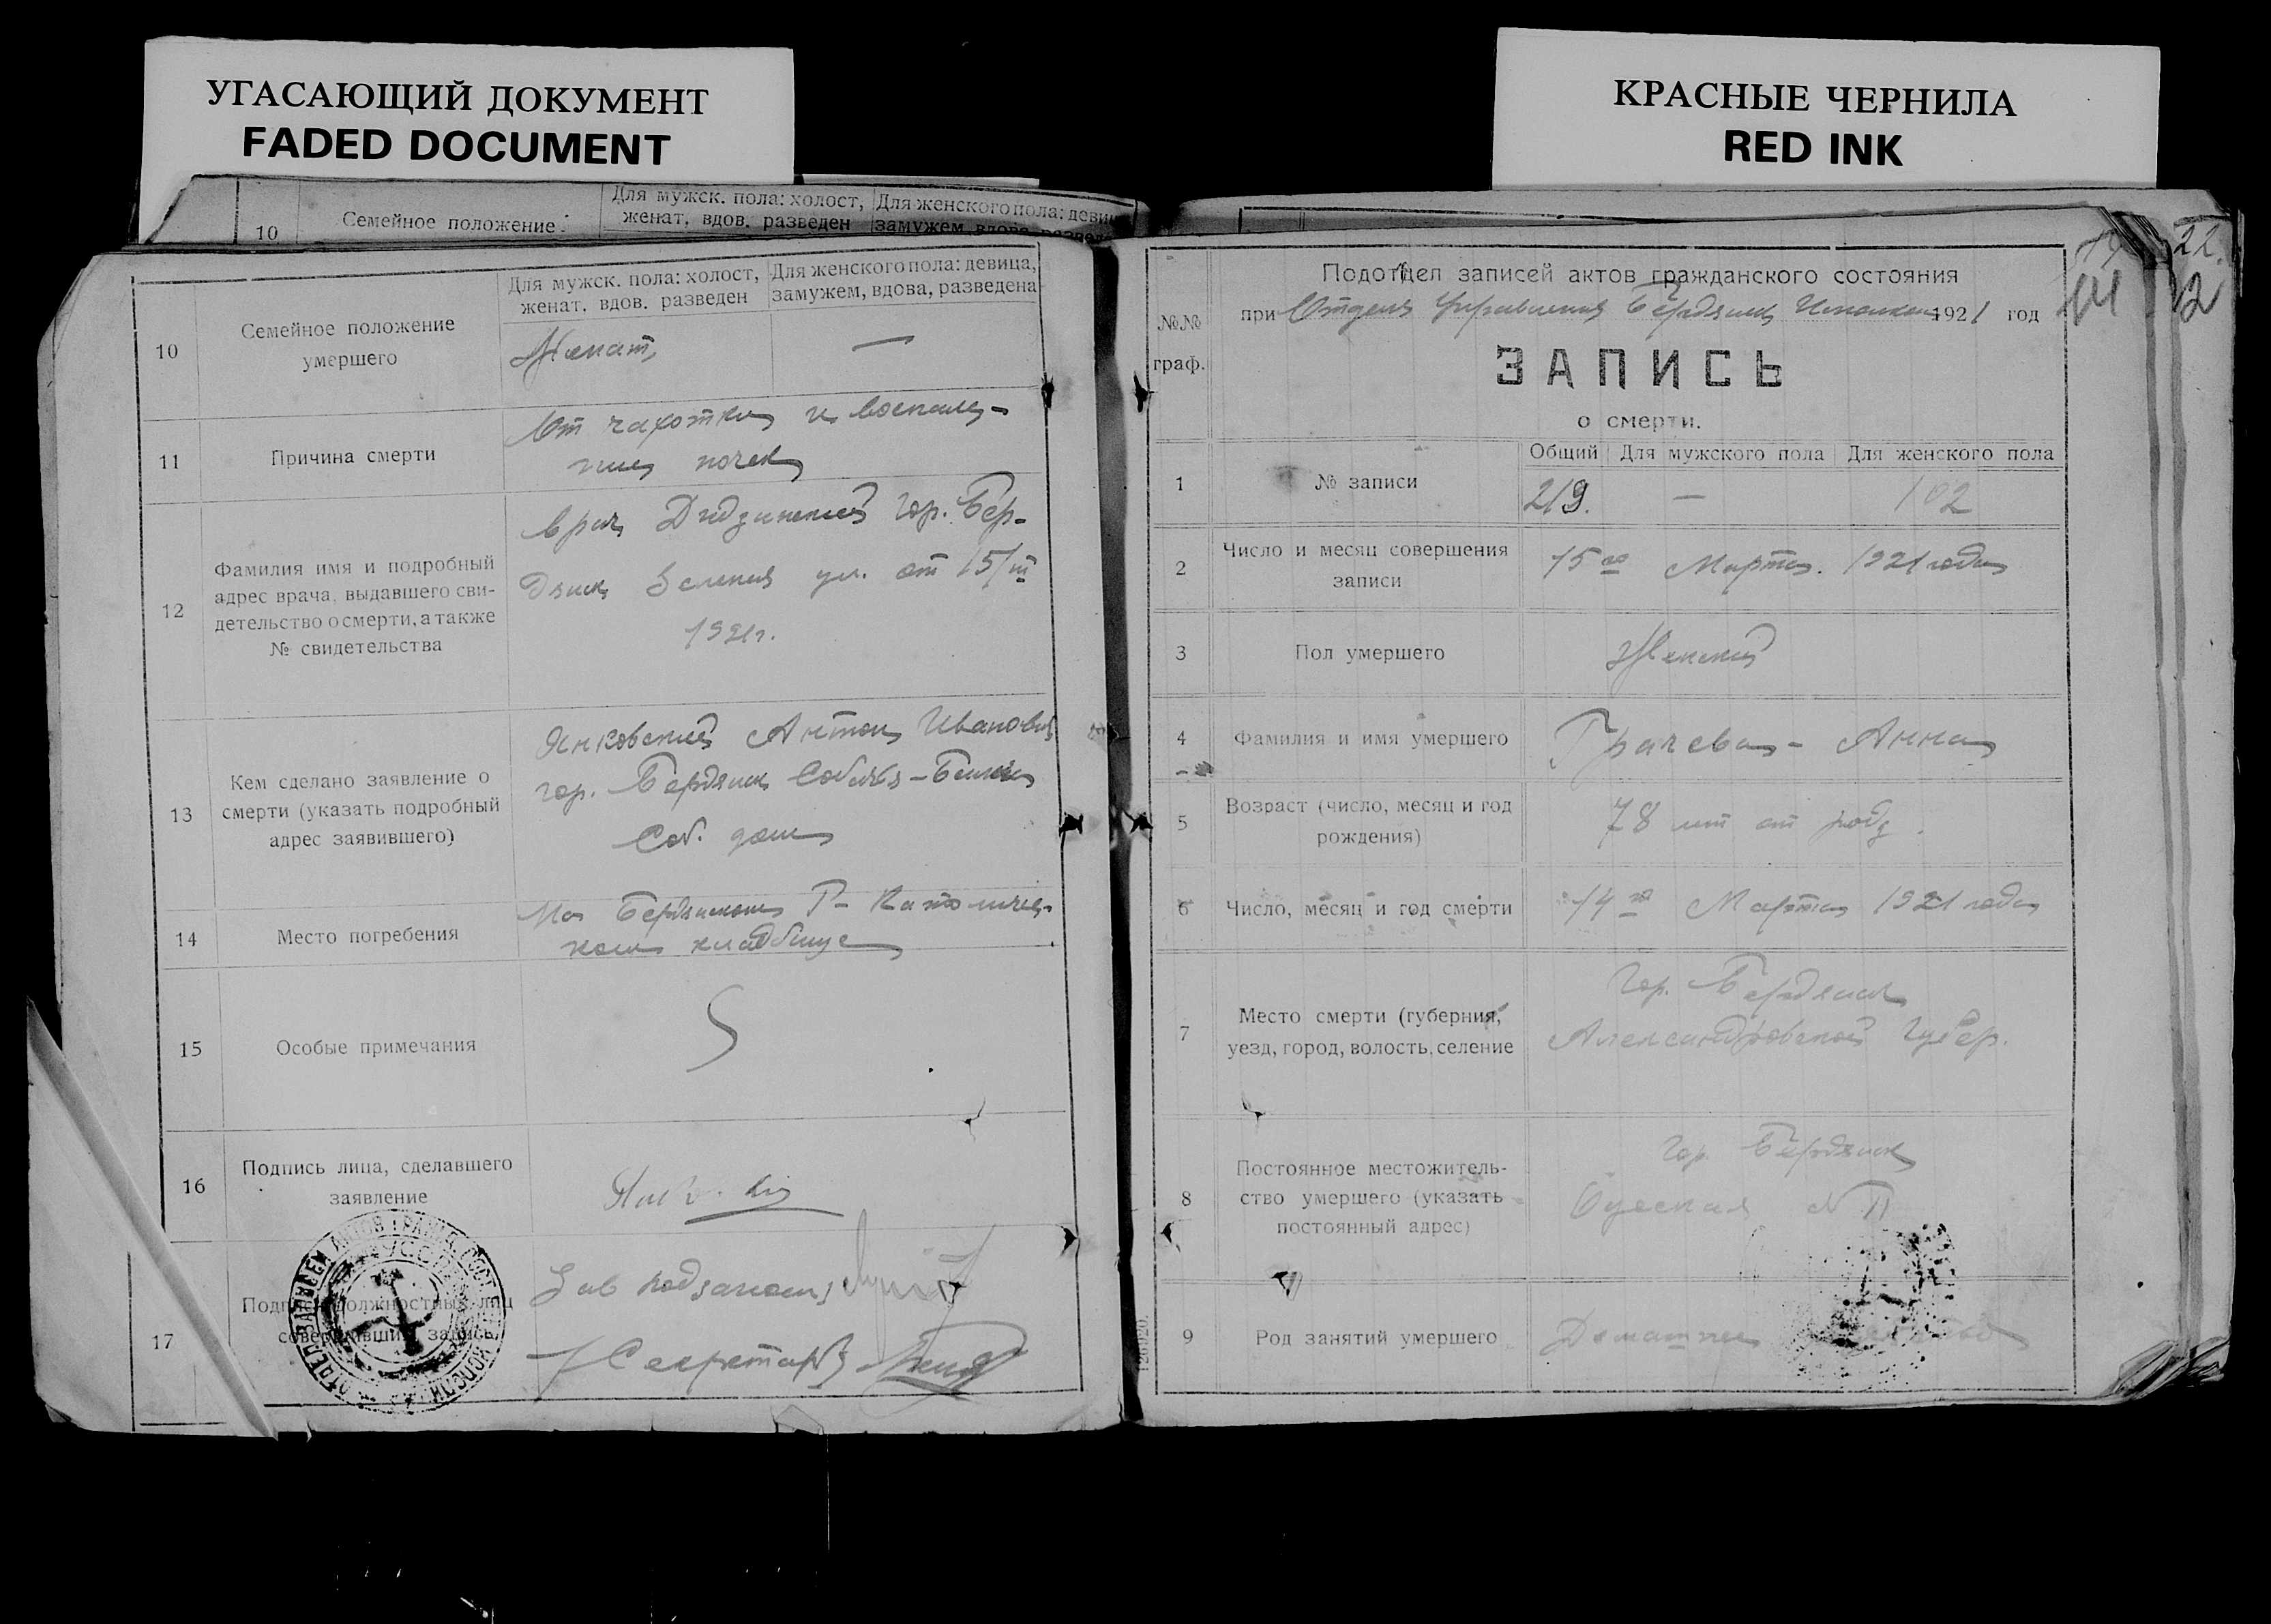 УГАСАЮЩИЙ ДОКУМЕНТ
FADED DOCUMENT
КРАСНЫЕ ЧЕРНИЛА
RED INK
10
Семейное положение
Для мужск. пола: холост,
женат, вдов. разведен
Для женского пола: девица,
замужем, вдова, разведена
10
Семейное положение
умершего
Для мужск. пола: холост,
женат. вдов. разведен
Для женского пола: девица,
замужем, вдова, разведена
Женат
—
11
Причина смерти
От чахотки и воспале-
ния почек
12
Фамилия имя и подробный
адрес врача, выдавшего сви-
детельство о смерти, а также
№ свидетельства
врач гор. Бер-
дянск ул. от 15/III
1921 г.
13
Кем сделано заявление о
смерти (указать подробный
адрес заявившего)
Янковский Антон Иванович
гор. Бердянск Собачья-Балка
Соб. дом
14
Место погребения
На Бердянском Р-Католичес-
ком кладбище
15
Особые примечания
16
Подпись лица, сделавшего
заявление
17
Подписи должностных лиц
совершивших запись
Зав
Секретарь
№№
граф.
Подотдел записей актов гражданского состояния
при Отделе Управления Бердянск 1921 год
ЗАПИСЬ
о смерти.
1
№ записи
Общий
Для мужского пола
Для женского пола
219.
—
102
2
Число и месяц совершения
записи
15го Марта 1921 года
3
Пол умершего
Женский
4
Фамилия и имя умершего
Грачева - Анна
5
Возраст (число, месяц и год
рождения)
78 лет от роду.
6
Число, месяц и год смерти
14го Марта 1921 года
7
Место смерти (губерния,
уезд, город, волость, селение
Гор. Бердянск
Александровской Губер.
8
Постоянное местожитель-
ство умершего (указать
постоянный адрес)
Гор. Бердянск
9
Род занятий умершего
22.